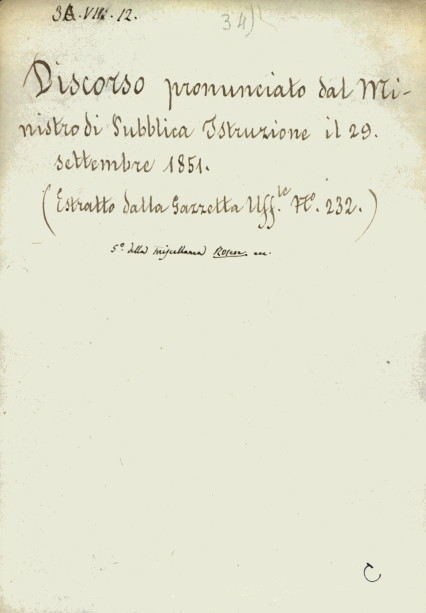 3A.VIII.12.
34)
Discorso pronunciato dal Mi-
nistro di Pubblica Istruzione il 29.
settembre 1851.
(Estratto dalla Gazzetta Uff.le No. 232.)
5o della miscellanea
C